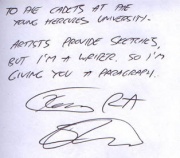 TO THE CADETS AT THE
YOUNG HERCULES UNIVERSITY.
ARTISTS PROVIDE SKETCHES,
BUT I'M A WRITER. SO I'M
GIVING YOU A PARAGRAPH.